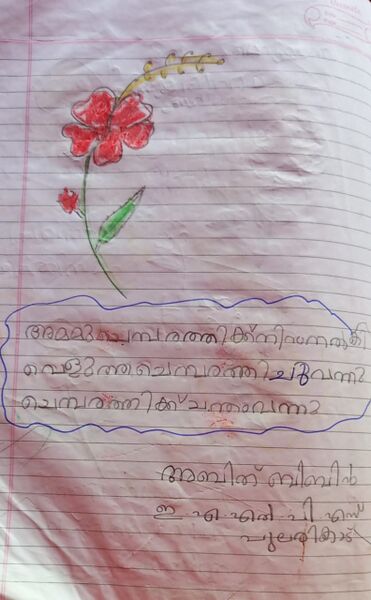 അമ്മു ചെമ്പരത്തിക്ക് നിറംനൽകി
വെളുത്ത ചെമ്പരത്തി ചുവന്നു
ചെമ്പരത്തിക്ക് ചന്തംവന്നു
അബിത് ബിബിൻ
ഇ എ എൽ പി എസ്
പുലരിക്കാട്